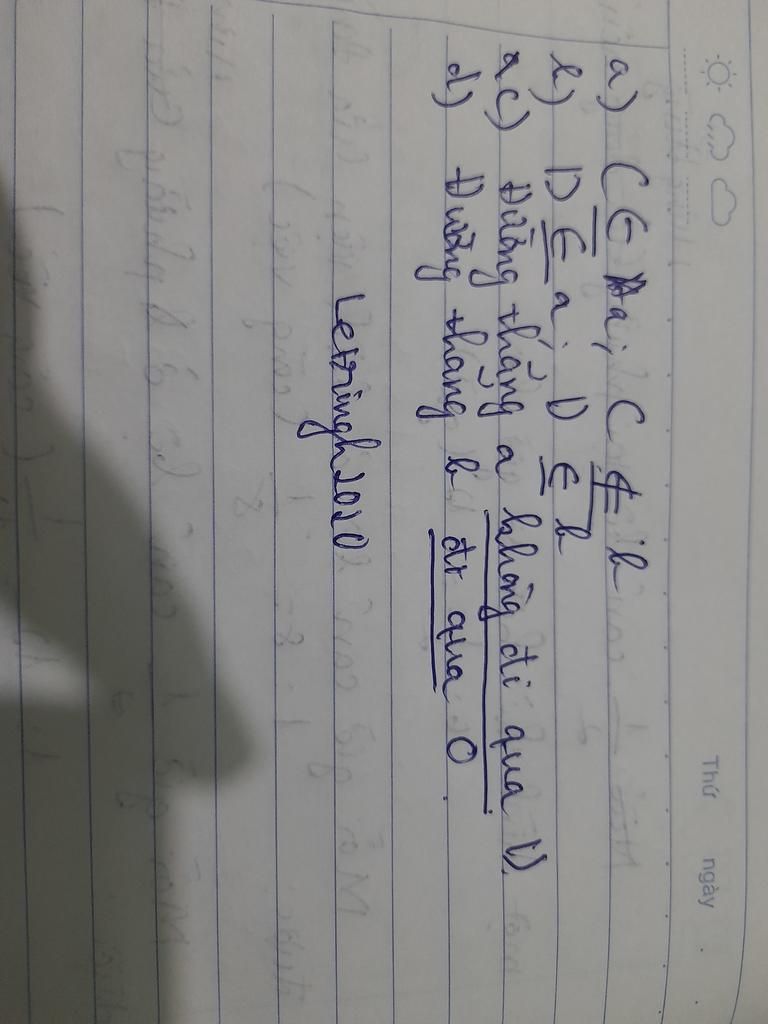 Thứ ngày
a) C ∈ a; C ∉ b
b) D ∈ a; D ∈ b
c) Đường thẳng a không đi qua D
d) Đường thẳng b đi qua O.
Letringh2020